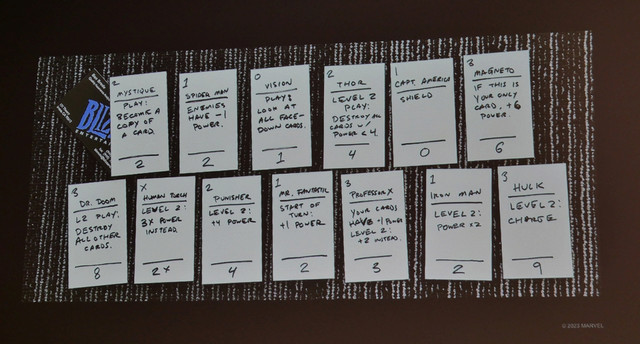 2
MYSTIQUE
PLAY:
BECOME A
COPY OF
A CARD.
2
1
SPIDER MAN
ENEMIES
HAVE -1
POWER.
2
0
VISION
PLAY:
LOOK AT
ALL FACE-
DOWN CARDS.
1
2
THOR
LEVEL 2
PLAY:
DESTROY ALL
CARDS W/
POWER ≤ 4
4
1
CAPT. AMERICA
SHIELD
0
3
MAGNETO
IF THIS IS
YOUR ONLY
CARD, +6
POWER.
6
BLIZ
3
DR. DOOM
L2 PLAY:
DESTROY
ALL OTHER
CARDS.
8
X
HUMAN TORCH
LEVEL 2:
3X POWER
INSTEAD.
2X
2
PUNISHER
LEVEL 2:
+4 POWER
4
1
MR. FANTASTIC
START OF
TURN:
+1 POWER
2
3
PROFESSOR X
YOUR CARDS
HAVE +1 POWER
LEVEL 2:
+2 INSTEAD.
3
1
IRON MAN
LEVEL 2:
POWER X2
2
3
HULK
LEVEL 2:
CHARGE
9
© 2022 MARVEL